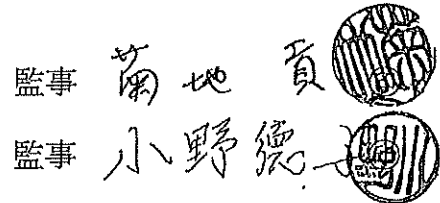 監事 菊地 貢
監事 小野 德子